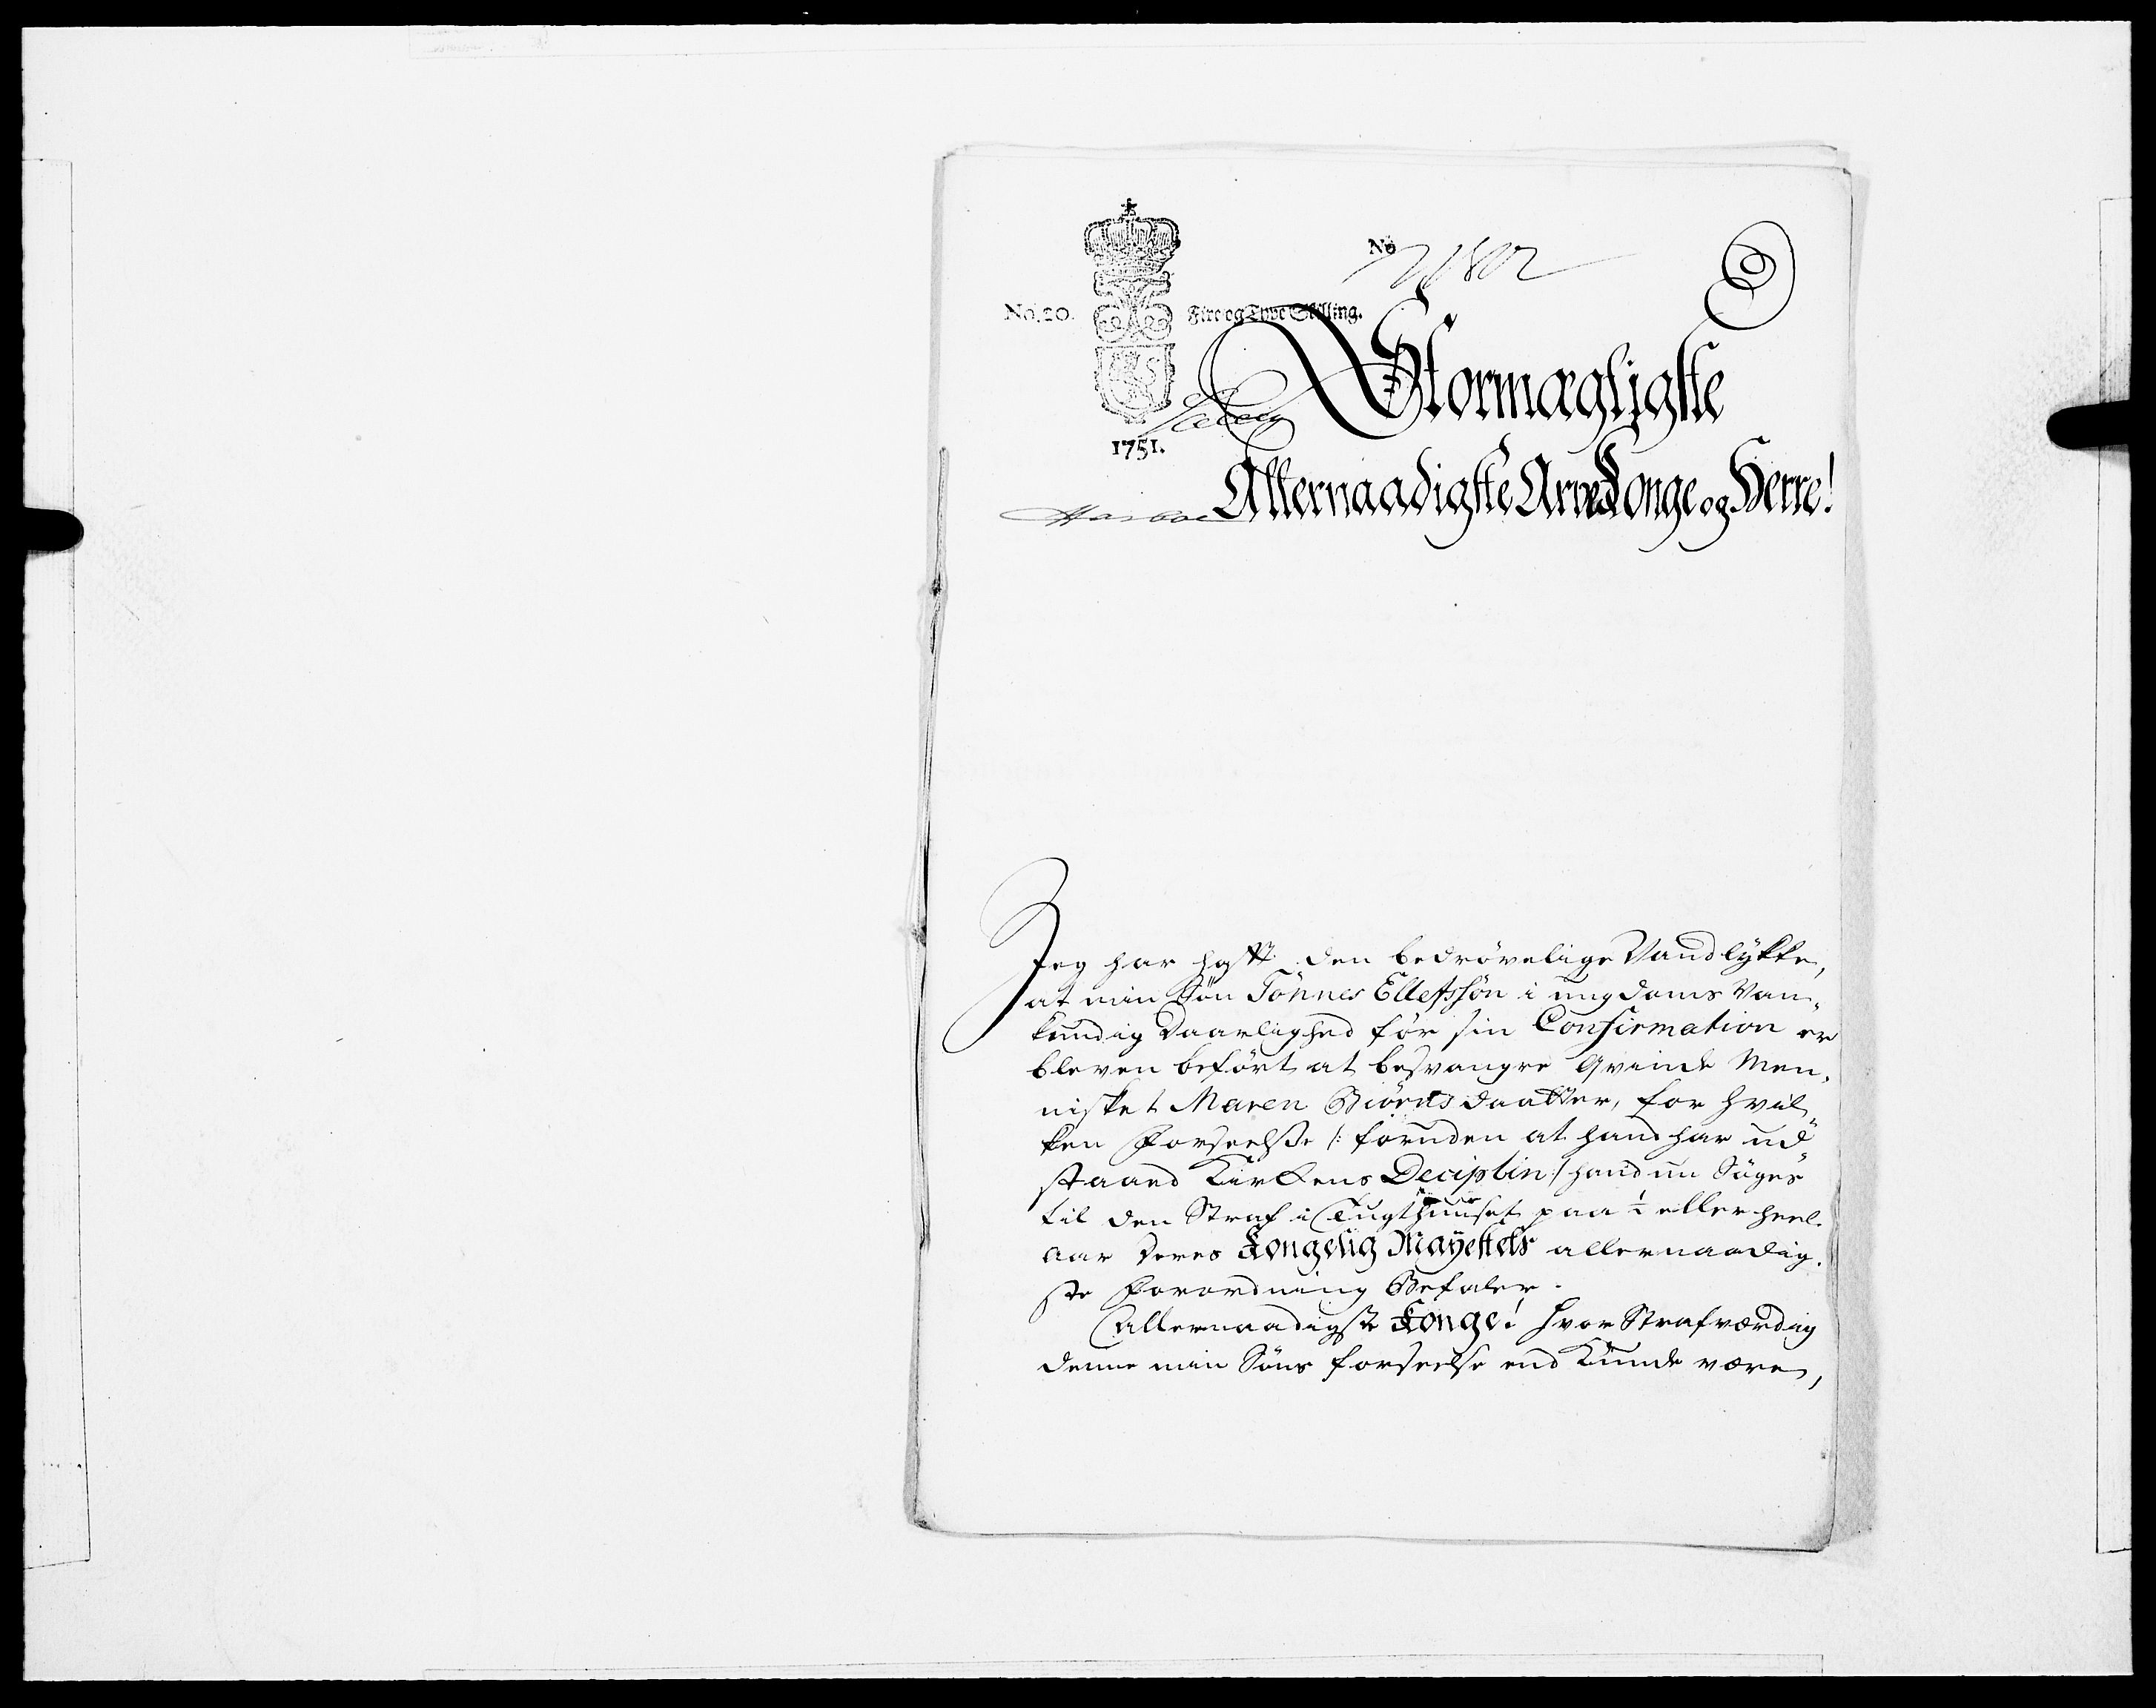 No
No. 20. Fire og Tyve Skilling.
Stormægtigste
1751.
Allernaadigste Arve Konge og Herre!
Jeg har hafft den bedrövelige Vandlykke,
at min Sön Tönnes Ellefssön i ungdoms Van„
kundig Daarlighed för sin Confirmation er
bleven befört at besvangre Qvinde Men„
nisket Maren Biörnsdaatter, for hvil„
ken Forseelsse /: foruden at hand har ud„
staaed Kirkens Deciplin :/ hand nu Söges
til den Straf i Tugthuuset paa ½ eller heel
Aar Deres Kongelig Mayestets allernaadig„
ste Forordning Befaler.
Allernaadigste Konge! hvor Strafværdig
denne min Söns forseelse end Kunde være,